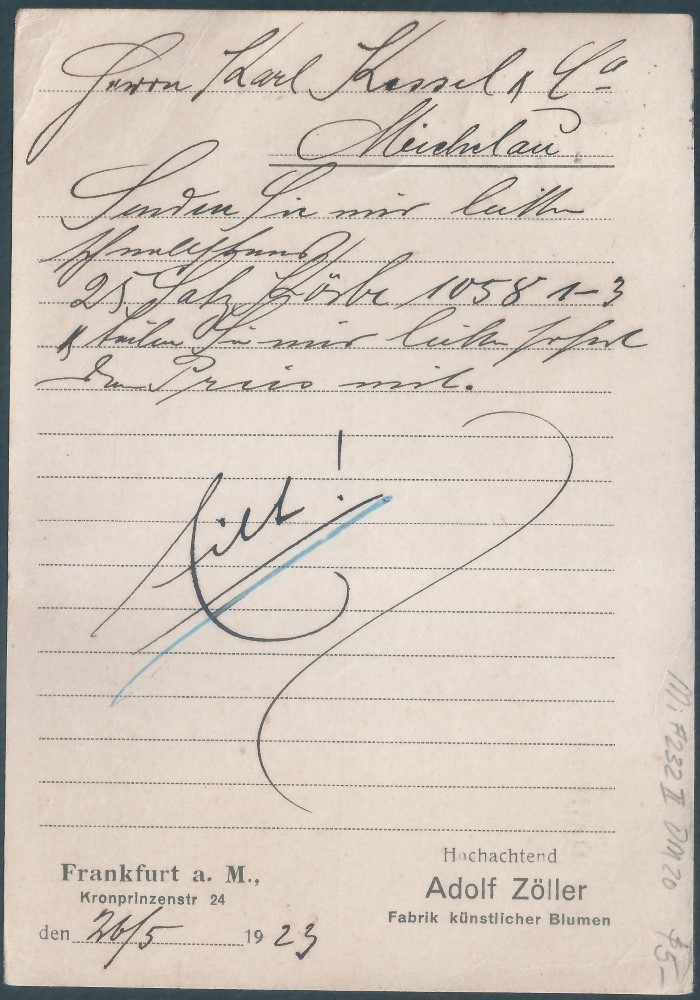 Herrn Karl Kessel & Co
Michelau
Senden Sie mir bitte
schnellstens
25 Satz Körbe 1058 1-3
& teilen Sie mir bitte sofort
den Preis mit.
Eilt!
Frankfurt a. M.,
Kronprinzenstr 24
den 26/5 1923
Hochachtend
Adolf Zöller
Fabrik künstlicher Blumen
Mi #232 II DM 20 $5-